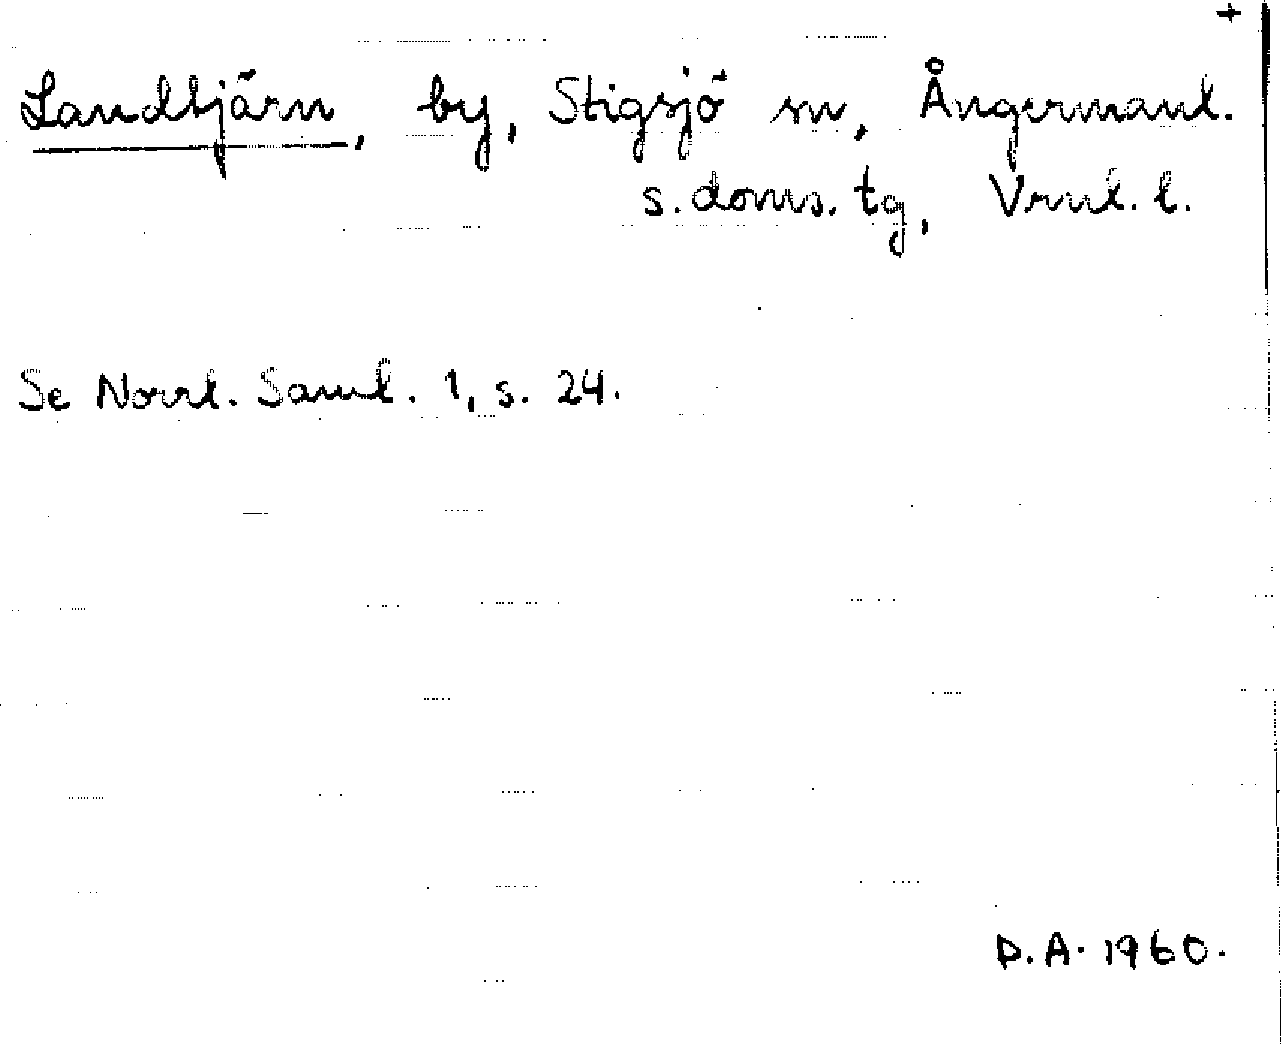 +
Landbjärn, by, Stigsjö sn, Ångermanl.
s. doms. tg, Vrnl. l.
Se Norrl. Saml. 1, s. 24.
D.A. 1960.